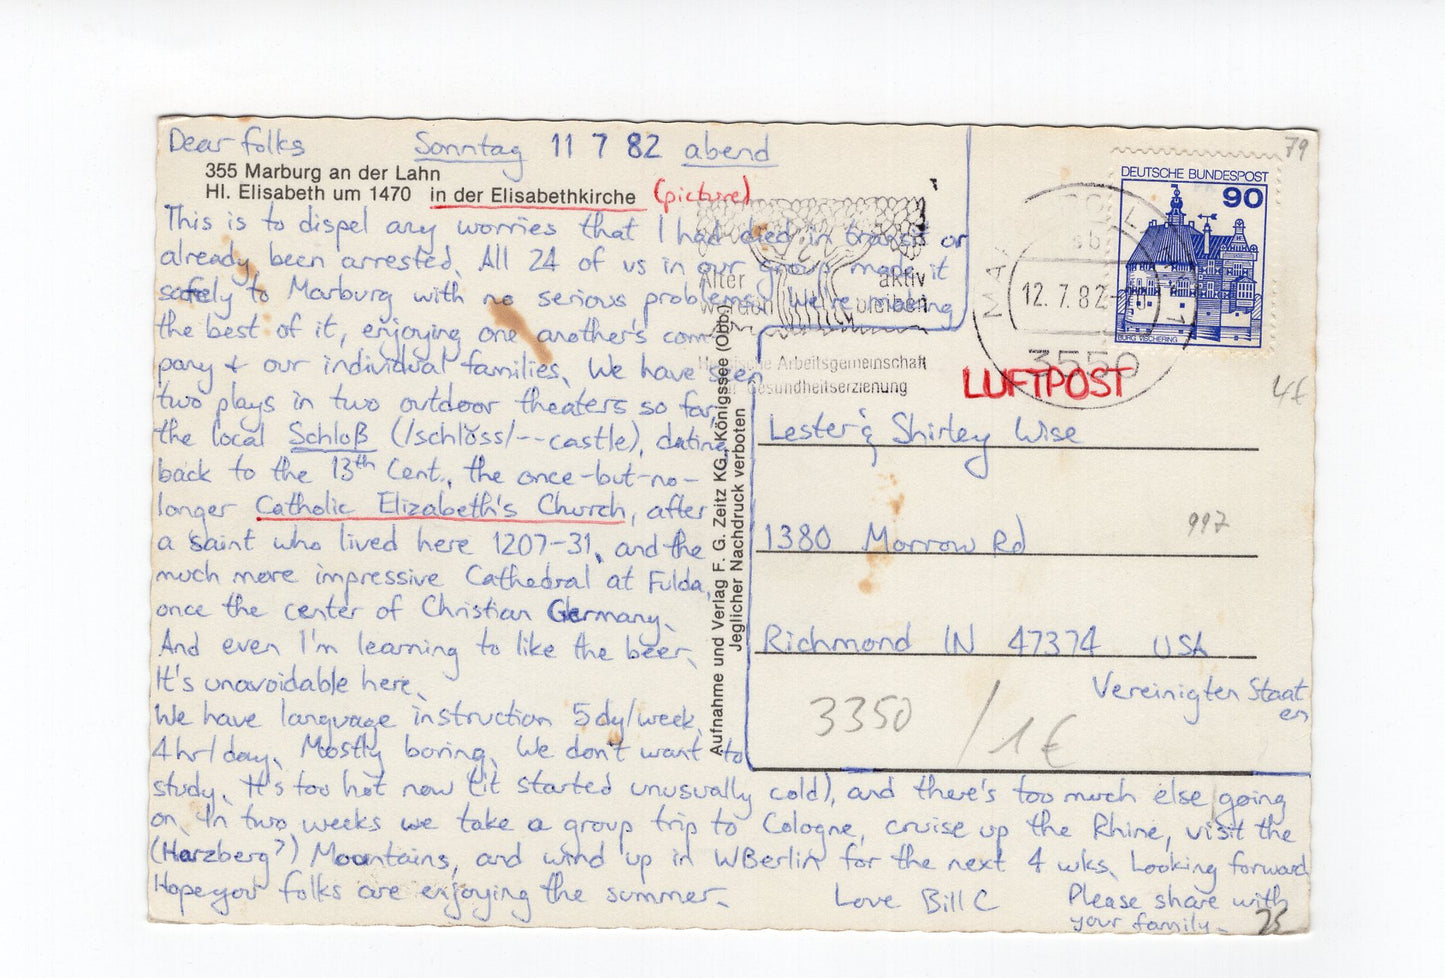 Dear folks Sonntag 11 7 82 abend
355 Marburg an der Lahn
Hl. Elisabeth um 1470 in der Elisabethkirche (picture)
This is to dispel any worries that I had died in transit or
already been arrested. All 24 of us in our group made it
safely to Marburg with no serious problems. We're making
the best of it, enjoying one another's com-
pany & our individual families. We have seen
two plays in two outdoor theaters so far,
the local Schloß (/schlŏss/--castle), dating
back to the 13th Cent., the once-but-no-
longer Catholic Elizabeth's Church, after
a saint who lived here 1207-31, and the
much more impressive Cathedral at Fulda,
once the center of Christian Germany.
And even I'm learning to like the beer.
It's unavoidable here.
We have language instruction 5 dy/week,
4 hr/day. Mostly boring. We don't want to
study. It's too hot now (it started unusually cold), and there's too much else going
on. In two weeks we take a group trip to Cologne, cruise up the Rhine, visit the
(Harzberg?) Mountains, and wind up in W Berlin for the next 4 wks. Looking forward
Hope you folks are enjoying the summer. Love Bill C
Please share with
your family.
25
Aufnahme und Verlag F. G. Zeitz KG., Königssee (Obb.)
Jeglicher Nachdruck verboten
Älter aktiv
werden bleiben
Hessische Arbeitsgemeinschaft
Gesundheitserziehung
79
DEUTSCHE BUNDESPOST
90
BURG VISCHERING
12.7.82
3550
LUFTPOST
4€
Lester & Shirley Wise
997
1380 Morrow Rd
Richmond IN 47374 USA
Vereinigten Staat
en
3350 / 1€